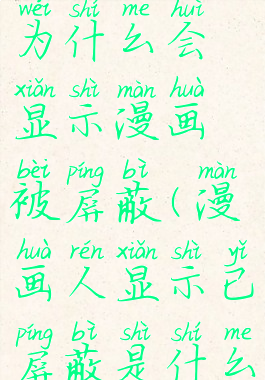 wèi shí me huì
为什么会
xiǎn shì màn huà
显示漫画
bèi píng bì màn
被屏蔽(漫
huà rén xiǎn shì yǐ
画人显示已
píng bì shì shí me
屏蔽是什么